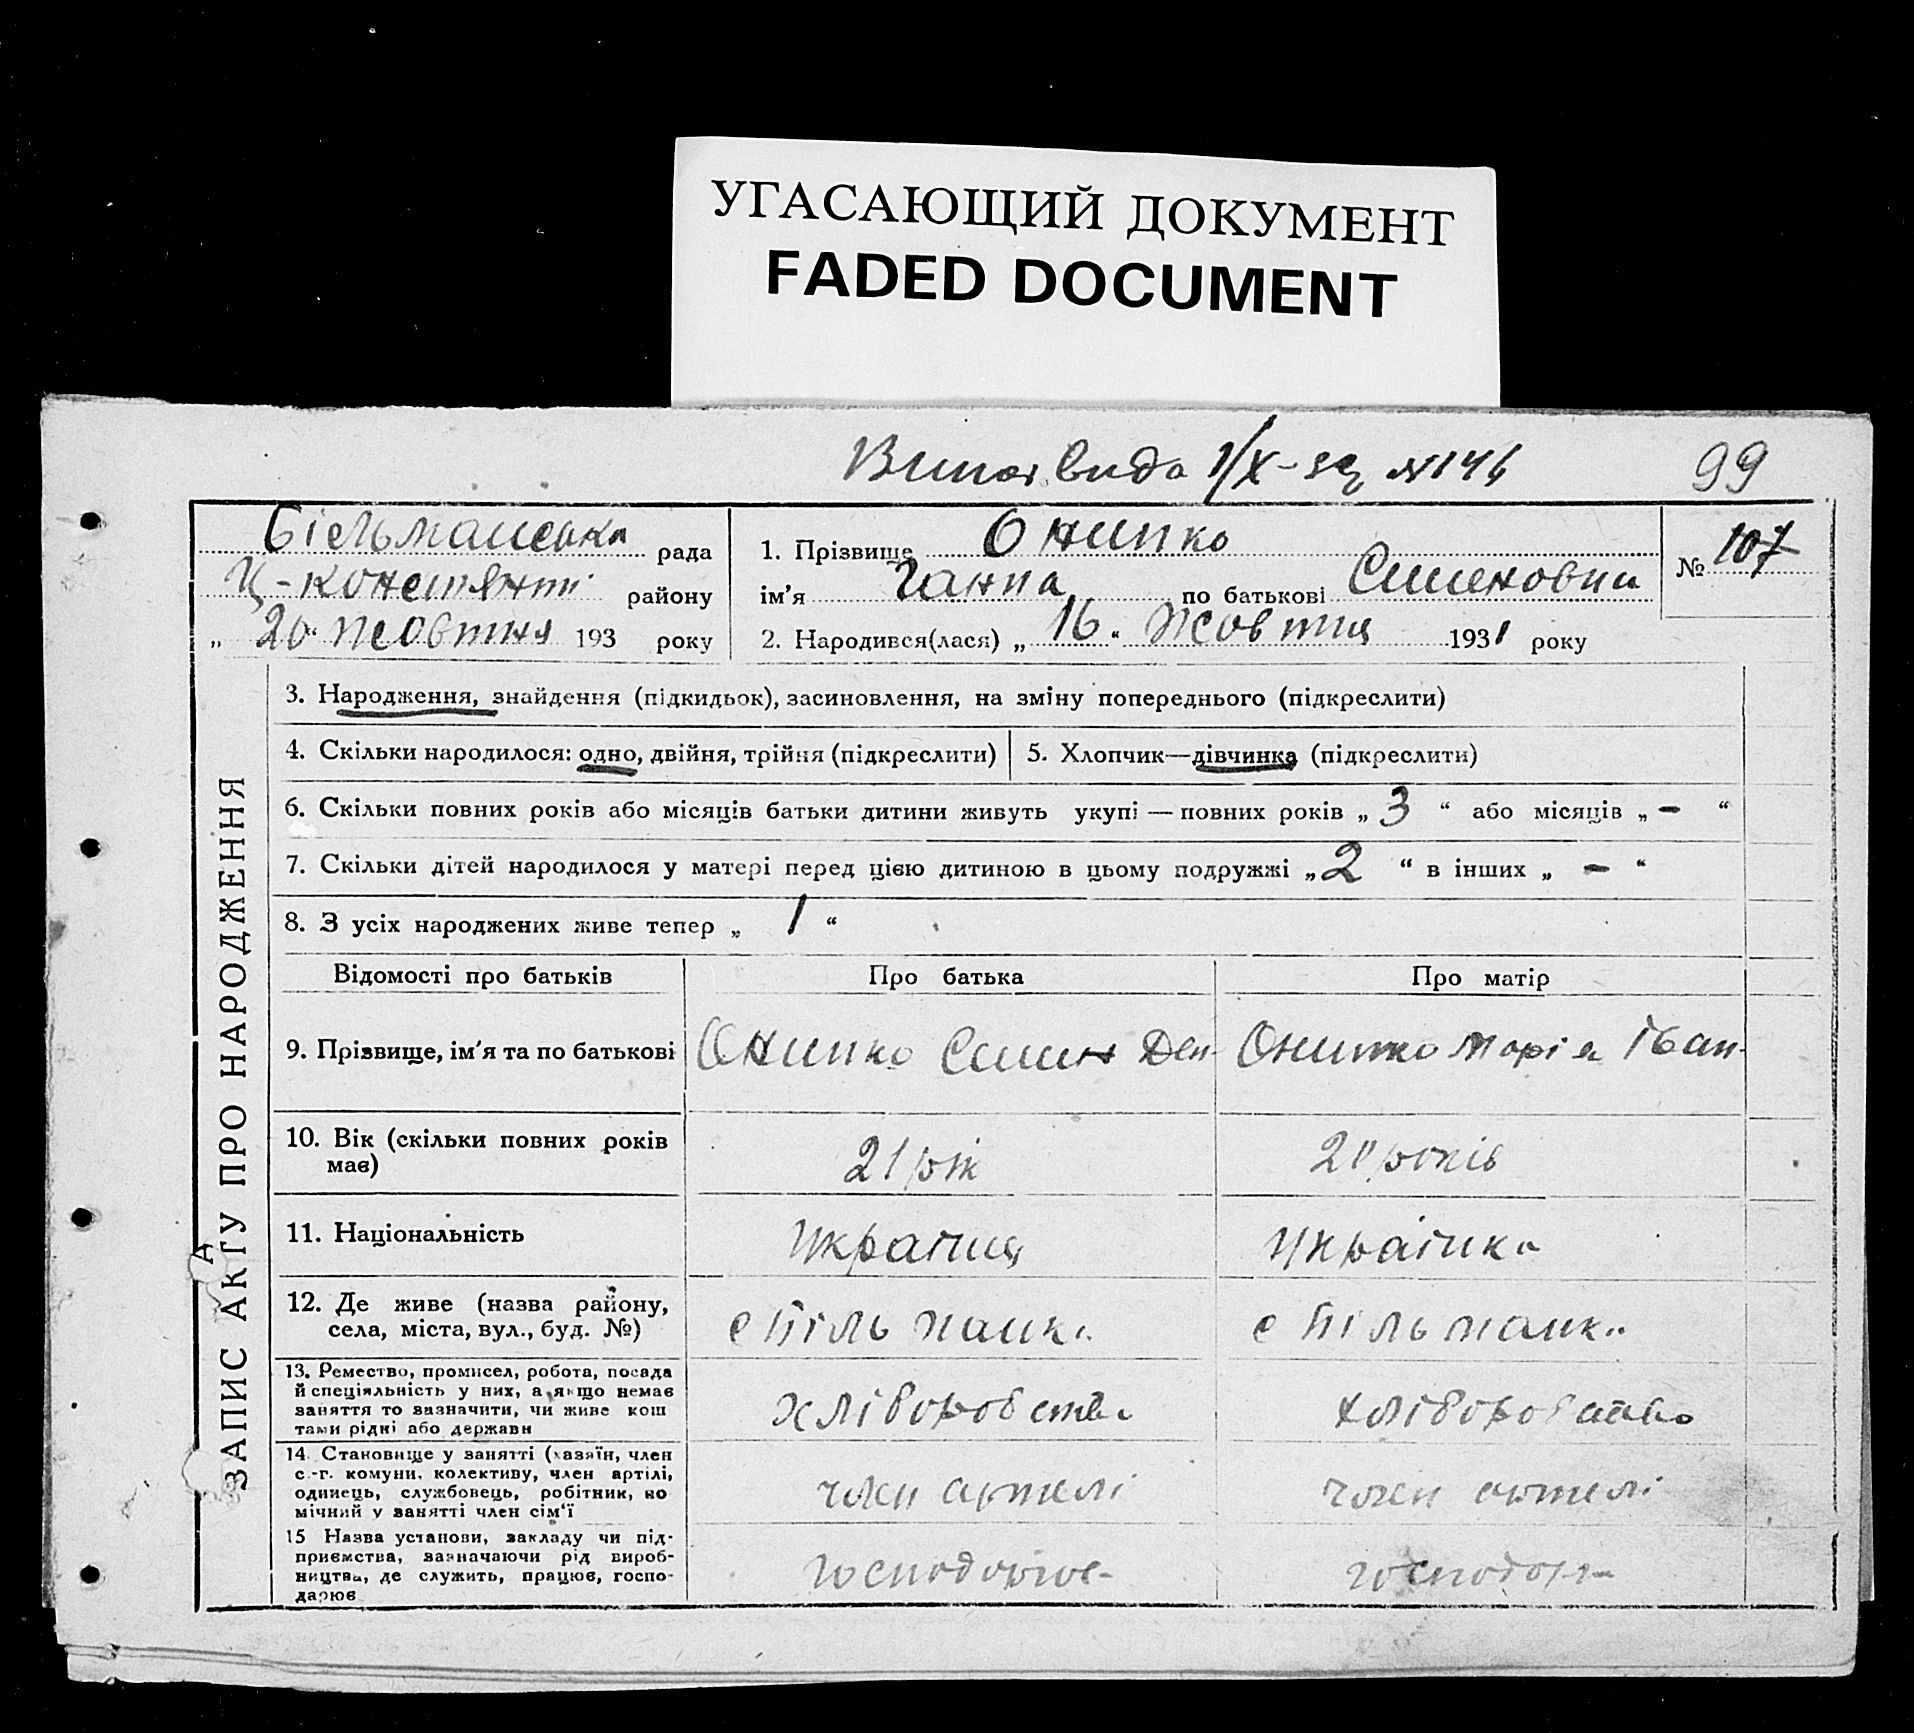 УГАСАЮЩИЙ ДОКУМЕНТ
FADED DOCUMENT
1/X- № 146
99
Більманська рада
Ц-констянт району
„ 20 “ жовтня 193 року
1. Прізвище Онипко
ім'я Ганна по батькові Семеновна
2. Народився(лася) „ 16 “ Жовтня 1931 року
№ 107
ЗАПИС АКТУ ПРО НАРОДЖЕННЯ
3. Народження, знайдення (підкидьок), засиновлення, на зміну попереднього (підкреслити)
4. Скільки народилося: одно, двійня, трійня (підкреслити)
5. Хлопчик—дівчинка (підкреслити)
6. Скільки повних років або місяців батьки дитини живуть укупі — повних років „ 3 “ або місяців „ – “
7. Скільки дітей народилося у матері перед цією дитиною в цьому подружжі „ 2 “ в інших „ – “
8. З усіх народжених живе тепер „ 1 “
Відомості про батьків
Про батька
Про матір
9. Прізвище, ім'я та по батькові
Онипко Семен Ден-
Онипко Марія Іван-
10. Вік (скільки повних років
має)
21 рік
20 років
11. Національність
Українц
Українка
12. Де живе (назва району,
села, міста, вул., буд. №)
с Більманка
с Більманка
13. Ремество, промисел, робота, посада
й спеціяльність у них, а якщо немає
заняття то зазначити, чи живе кош
тами рідні або держави
хліборобство
хліборобство
14. Становище у занятті (хазяїн, член
с.-г. комуни, колективу, член артілі,
одинець, службовець, робітник, по
мічний у занятті член сім'ї
член артелі
член артелі
15 Назва установи, закладу чи під-
приємства, зазначаючи рід вироб-
ництва, де служить, працює, госпо-
дарює